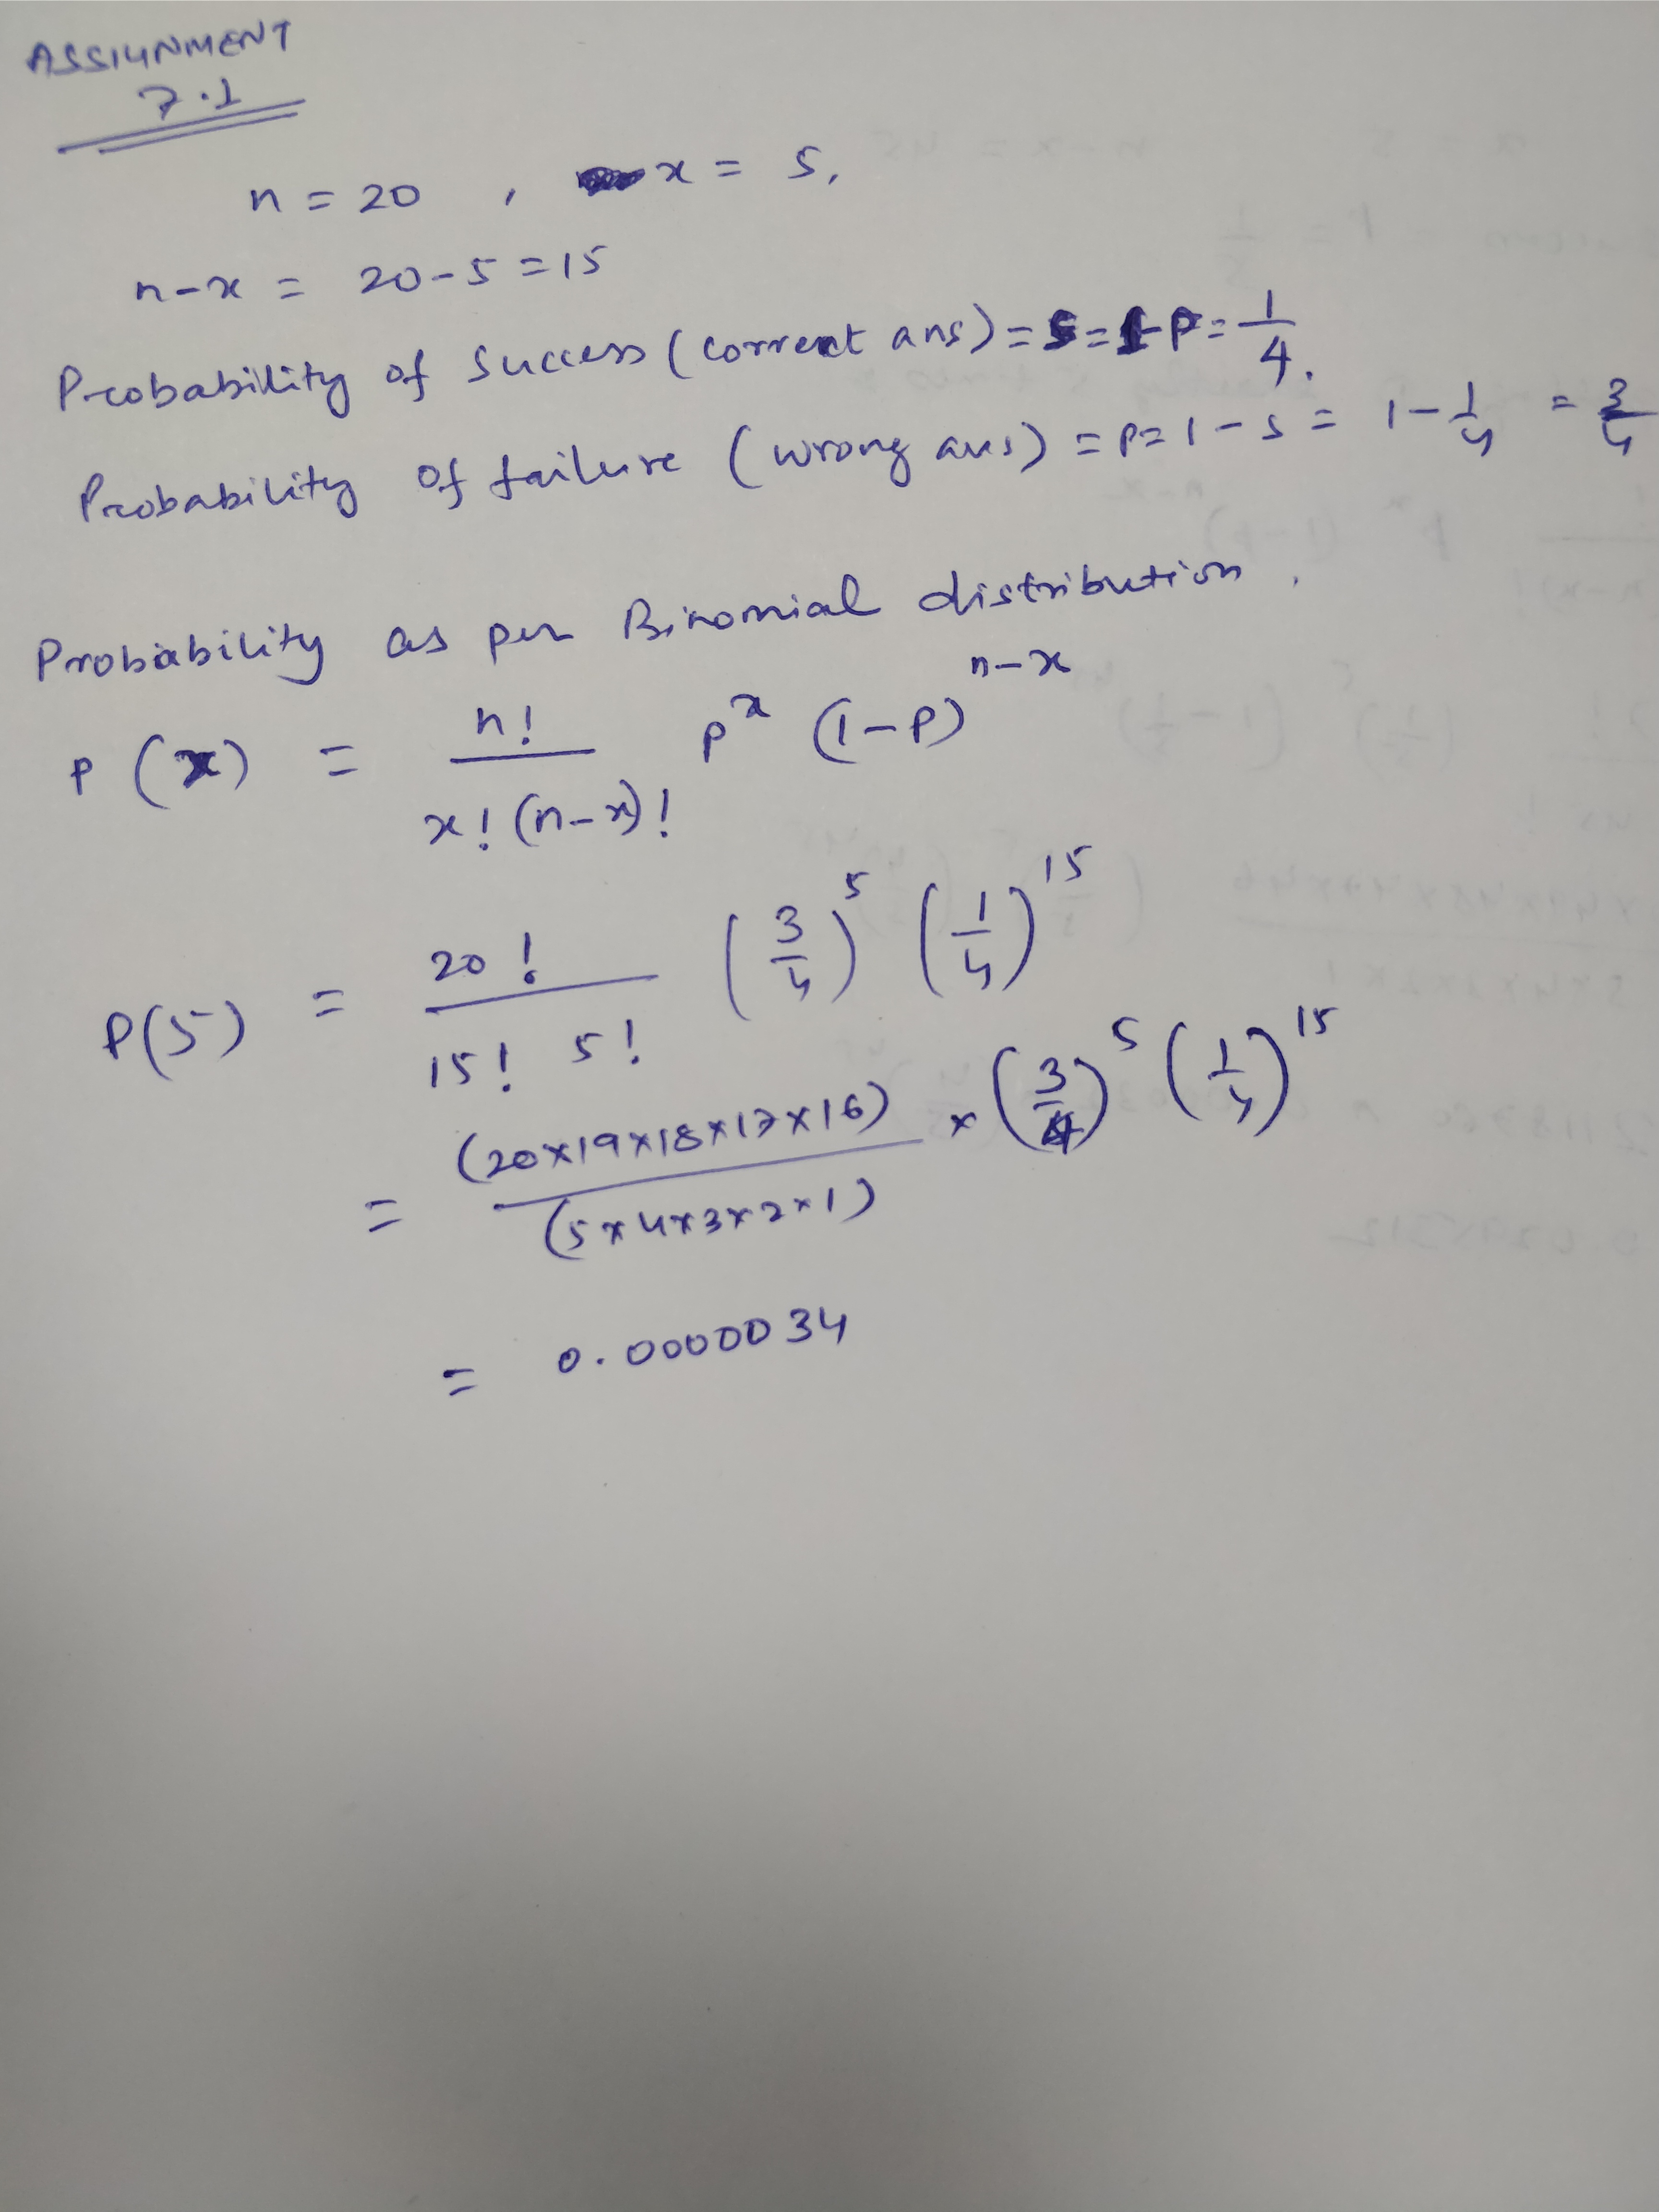 ASSIGNMENT
7.1
n = 20 , x = 5,
n-x = 20-5 =15
Probability of success (correct ans) = S = 1-P = 1/4.
Probability of failure (wrong ans) = P= 1-s = 1-1/4 = 3/4
Probability as per Binomial distribution,
P(x) = n! / x!(n-x)! p^x (1-P)^n-x
P(5) = 20! / 15! 5! (3/4)^5 (1/4)^15
= (20×19×18×17×16) / (5×4×3×2×1) × (3/4)^5 (1/4)^15
= 0.0000034